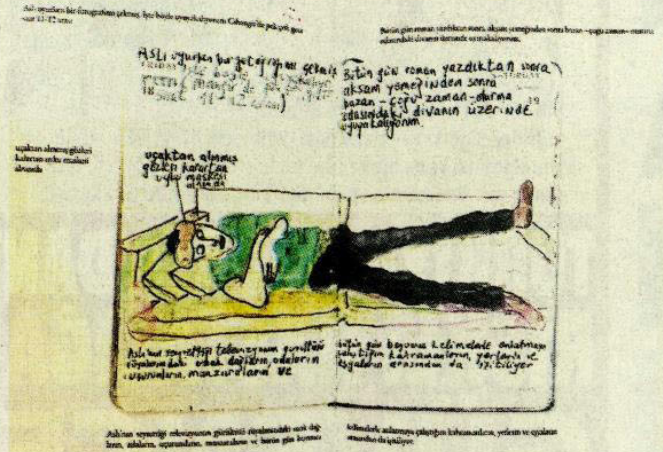 Aslı uyurken bir fotoğrafımı çekmiş. İşte böyle uyuyakalıyorum Cihangir'de pek çok gece
saat 11-12 arası
Bütün gün roman yazdıktan sonra, akşam yemeğinden sonra bazan –çoğu zaman– oturma
odasındaki divanın üzerinde uyuyakalıyorum.
Aslı uyurken bir fotoğrafımı çekmiş
işte böyle
saat 11-12 arası)
Bütün gün roman yazdıktan sonra
akşam yemeğinden sonra
bazan - çoğu zaman - oturma
odasındaki divanın üzerinde
uyuyakalıyorum.
19
uçaktan alınmış gözleri
karartan uyku maskesi
alnımda
uçaktan alınmış
gözleri karartan
uyku maskesi
alnımda
Aslı'nın seyrettiği televizyonun gürültüsü
rüyalarımdaki uzak dağların, odaların
uçurumların, manzaraların ve
bütün gün boyunca kelimelerle anlatmaya
çalıştığım kahramanların, yerlerin ve
eşyaların arasından da işitiliyor
Aslı'nın seyrettiği televizyonun gürültüsü rüyalarımdaki uzak dağ-
ların, odaların, uçurumların, manzaraların ve bütün gün boyunca
kelimelerle anlatmaya çalıştığım kahramanların, yerlerin ve eşyaların
arasından da işitiliyor.